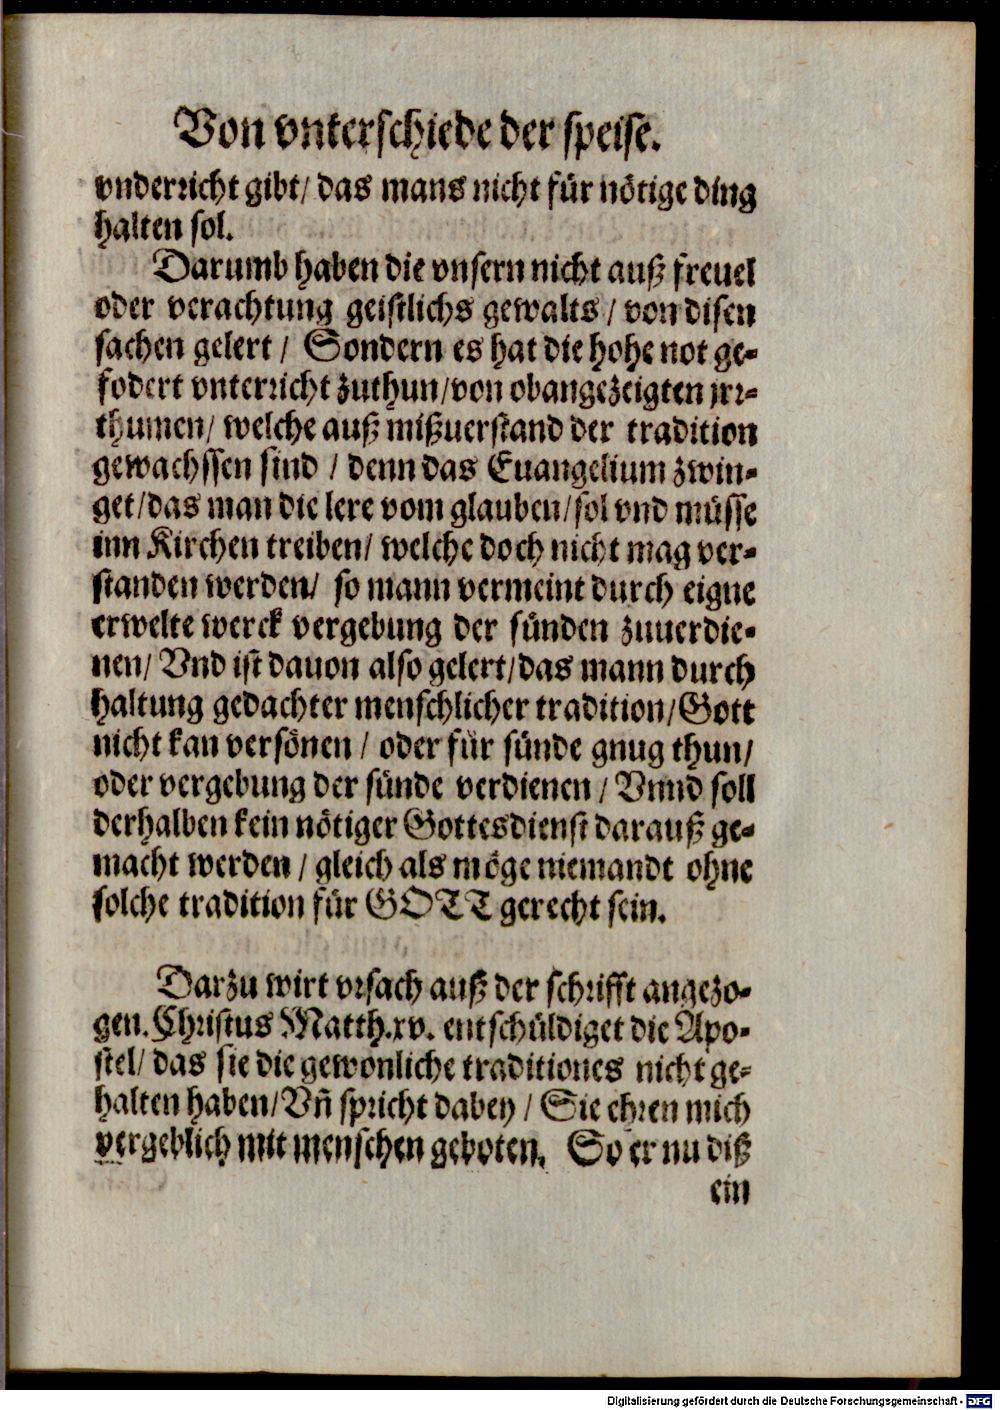 Von vnterschiede der speise.
vnderricht gibt/ das mans nicht für nötige ding
halten sol.
Darumb haben die vnsern nicht auß freuel
oder verachtung geistlichs gewalts / von disen
sachen gelert / Sondern es hat die hohe not ge-
fodert vnterricht zuthun/von obangezeigten jrr-
thumen/ welche auß mißuerstand der tradition
gewachssen sind / denn das Euangelium zwin-
get/das man die lere vom glauben/sol vnd müsse
inn Kirchen treiben/ welche doch nicht mag ver-
standen werden/ so mann vermeint durch eigne
erwelte werck vergebung der sünden zuuerdie-
nen/ Vnd ist dauon also gelert/das mann durch
haltung gedachter menschlicher tradition/Gott
nicht kan versönen / oder für sünde gnug thun/
oder vergebung der sünde verdienen / Vnnd soll
derhalben kein nötiger Gottesdienst darauß ge-
macht werden / gleich als möge niemandt ohne
solche tradition für GOTT gerecht sein.
Darzu wirt vrsach auß der schrifft angezo-
gen. Christus Matth.xv. entschüldiget die Apo-
stel/ das sie die gewonliche traditiones nicht ge-
halten haben/Vñ spricht dabey / Sie ehren mich
vergeblich mit menschen geboten. So er nu diß
ein
Digitalisierung gefördert durch die Deutsche Forschungsgemeinschaft - DFG